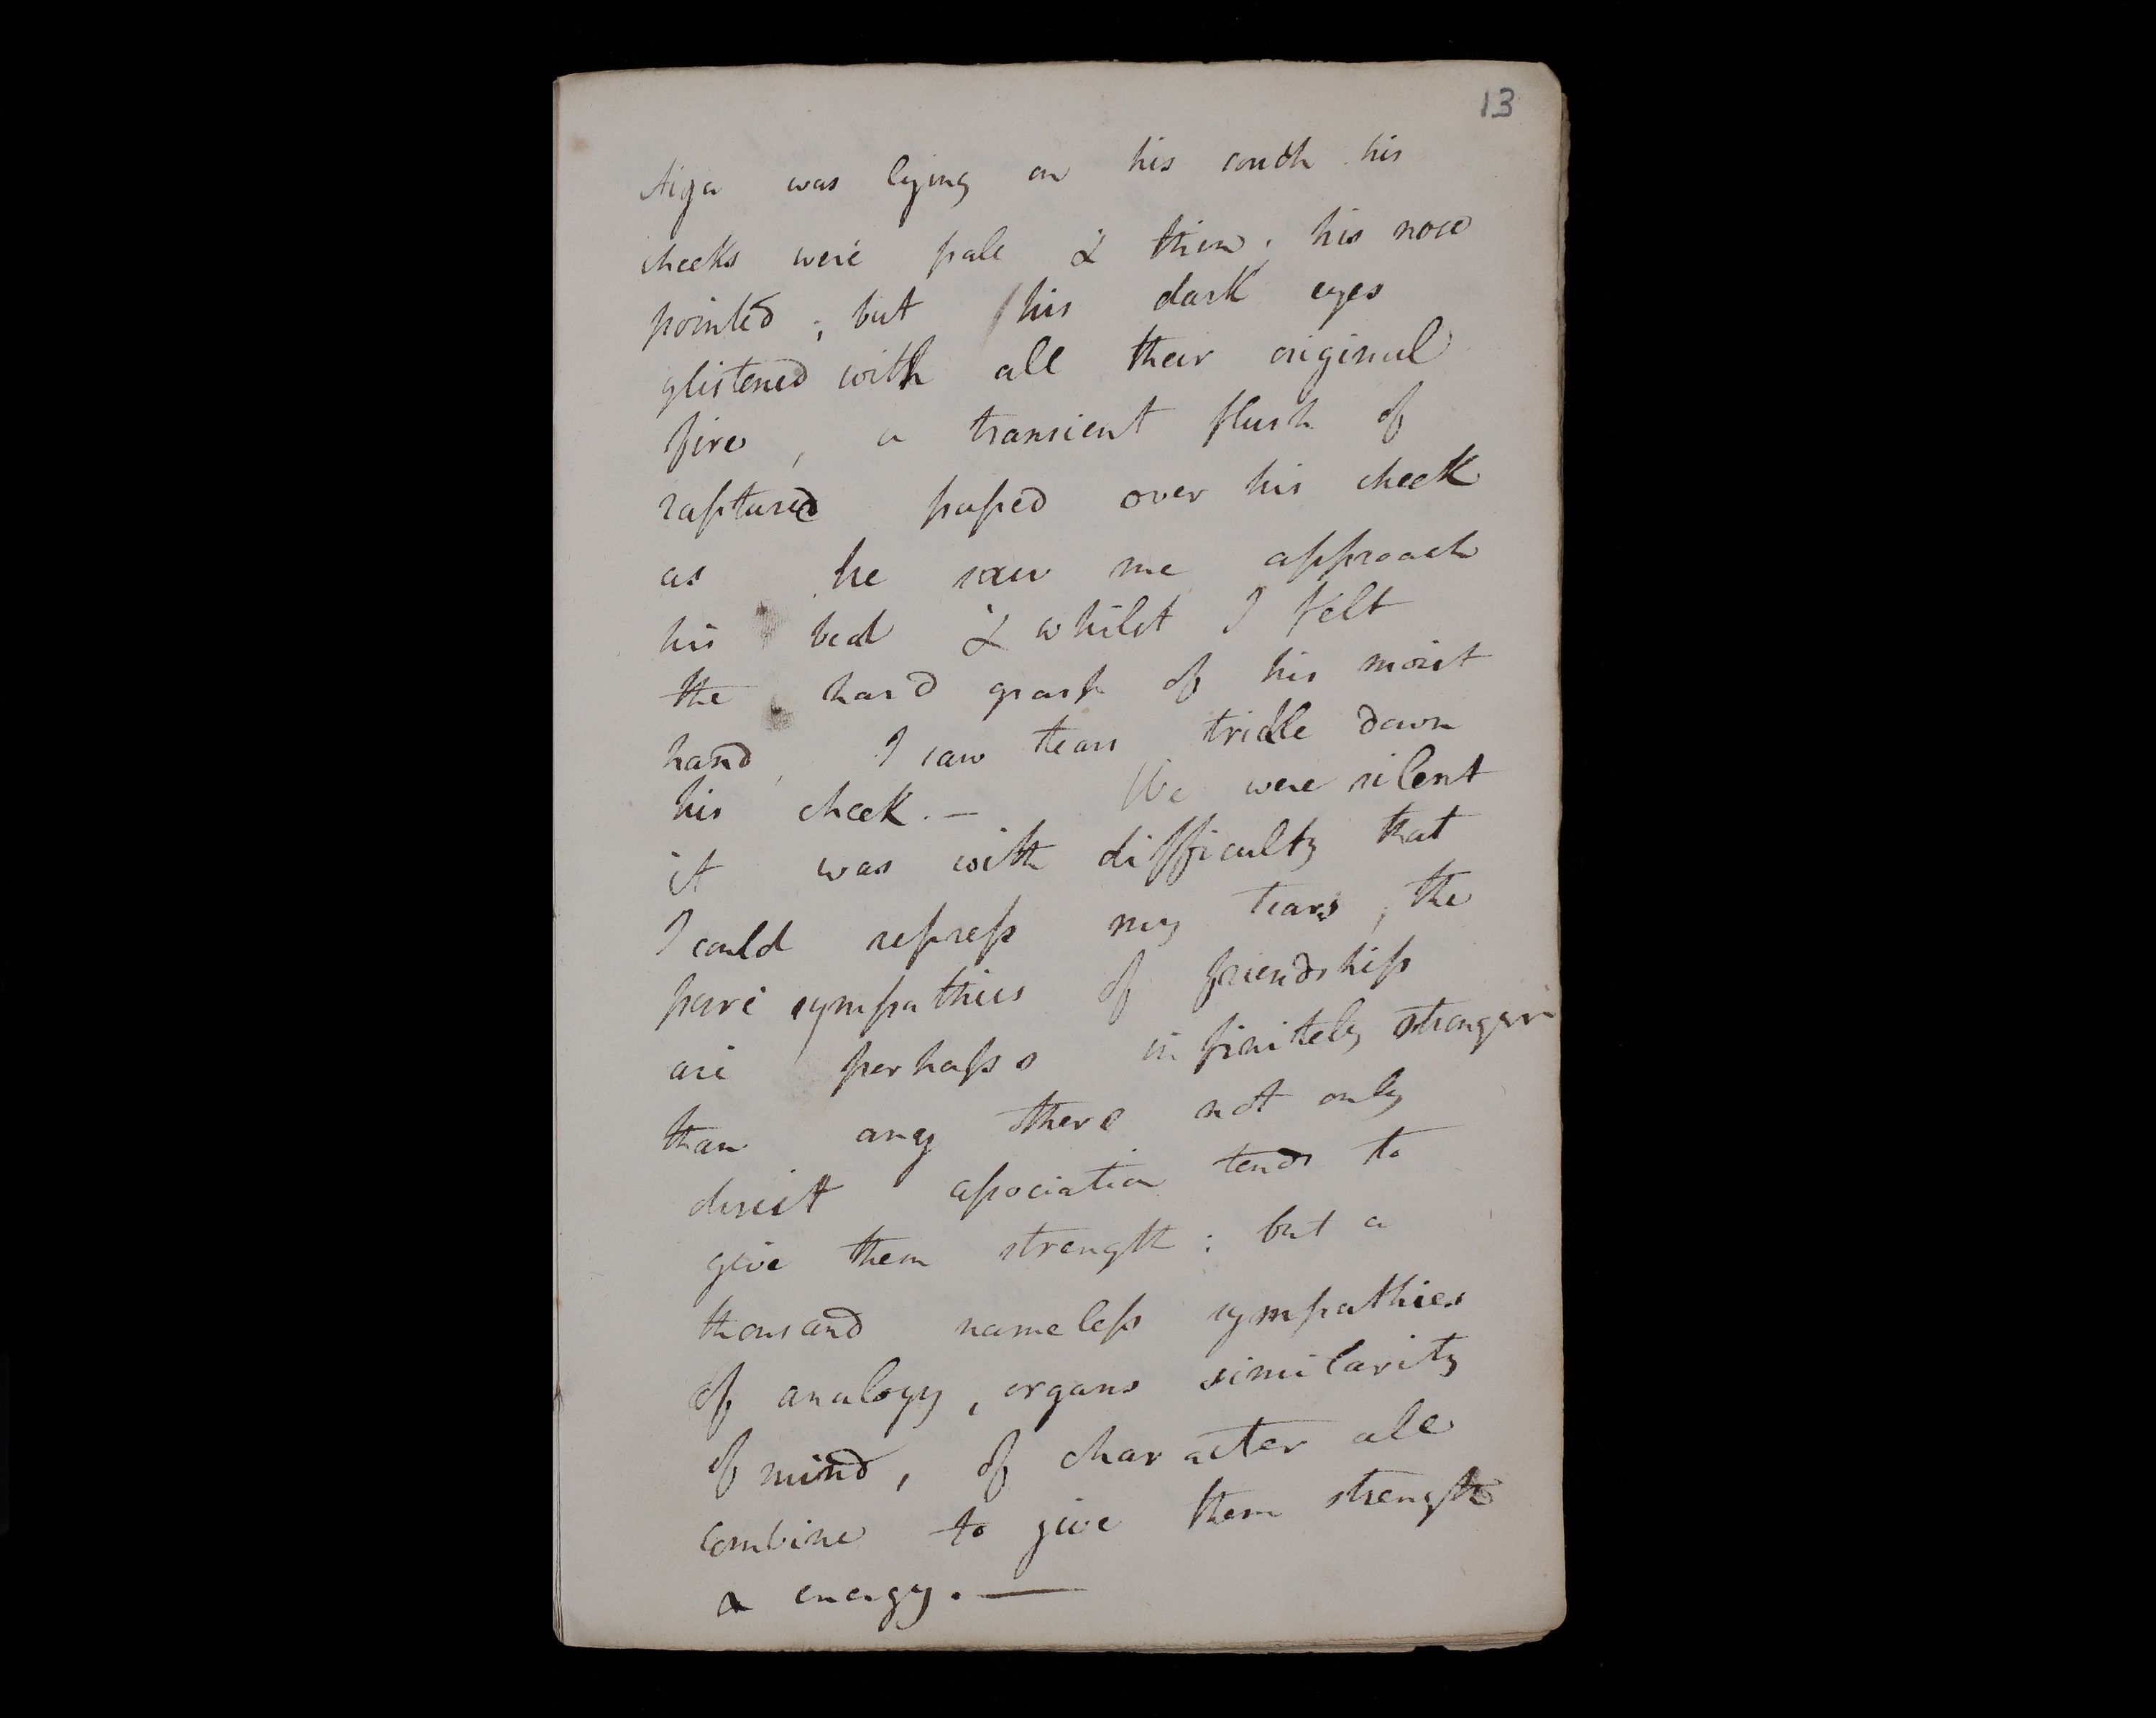 13
Aiga was lying on his couch his
cheeks were pale & thin; his nose
pointed; but his dark eyes
glistened with all their original
fire, a transient flush of
raptured passed over his cheek
as he saw me approach
his bed & whilst I felt
the hard grasp of his moist
hand, I saw tears trickle down
his cheek. — We were silent
it was with difficulty that
I could repress my tears; the
pure sympathies of friendship
are perhaps infinitely stronger
than any there not only
direct association tends to
give them strength: but a
thousand nameless sympathies
of analogy, organs similarity
of mind, of character all
combine to give them strength
& energy. —